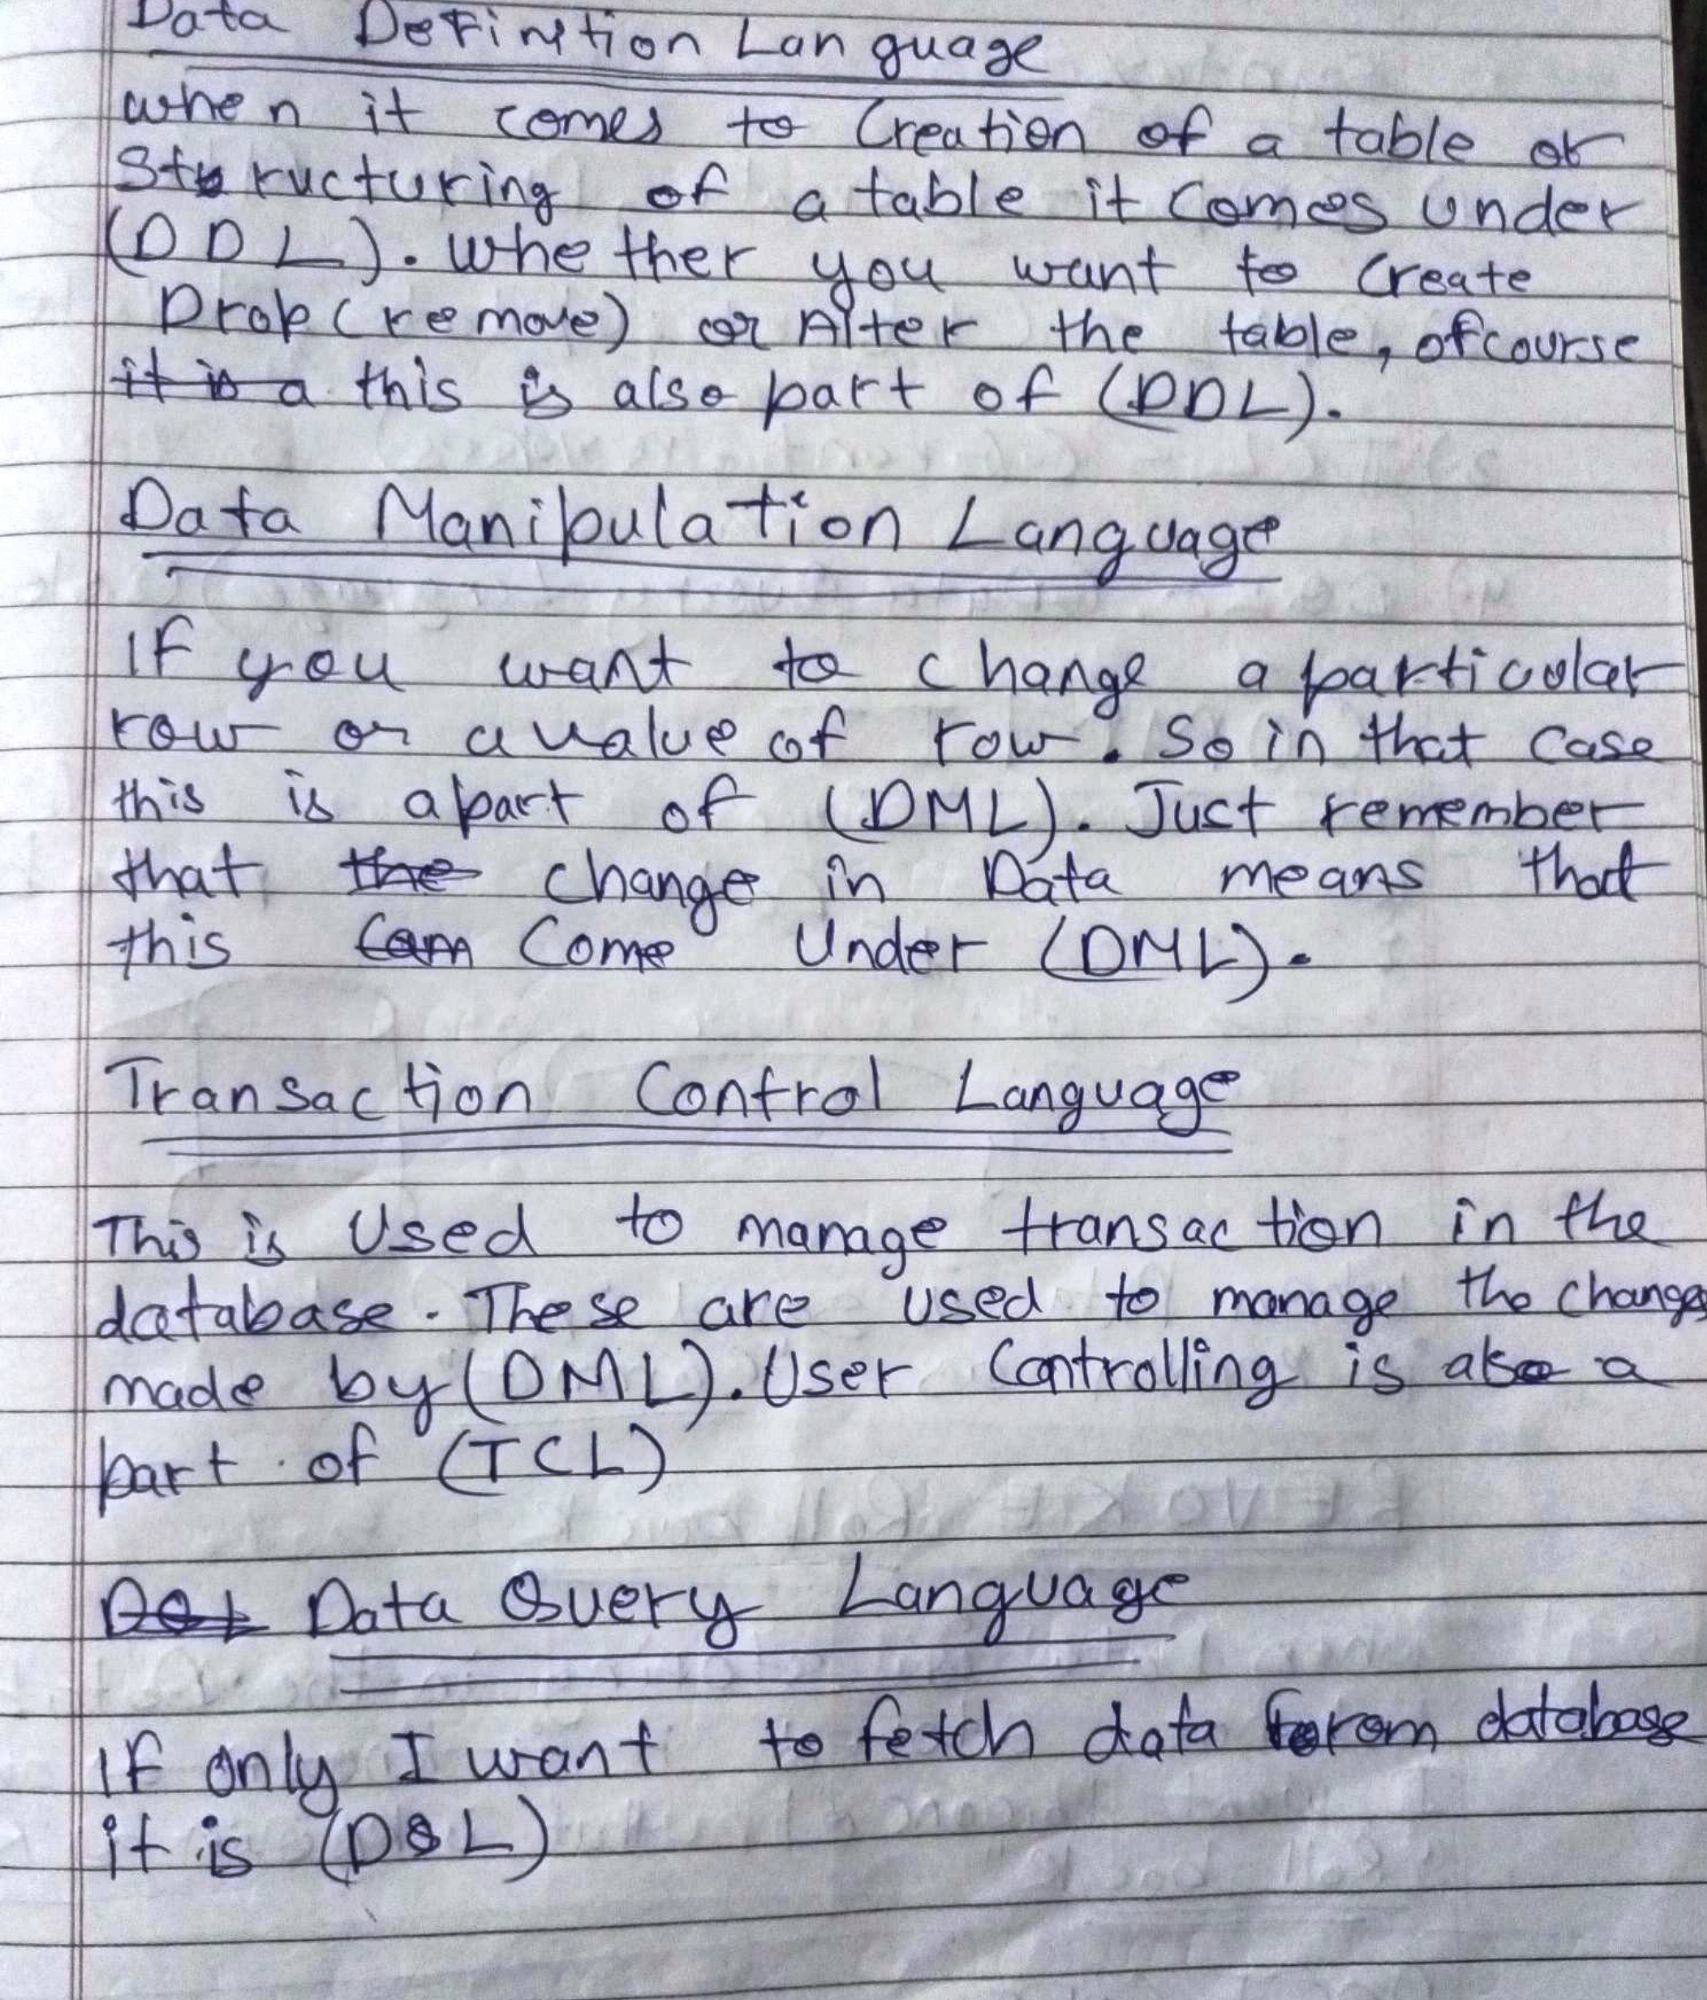 Data Definition Language
when it comes to Creation of a table or
Structuring of a table it comes under
(DDL). Whether you want to Create
Drop (remove) or Alter the table, ofcourse
it is a this is also part of (DDL).
Data Manipulation Language
If you want to change a particular
row or a value of row. So in that case
this is a part of (DML). Just remember
that the change in Data means that
this Cam Come Under (DML).
Transaction Control Language
This is Used to manage transaction in the
database. These are used to manage the changes
made by (DML). User Controlling is also a
part of (TCL)
Data Query Language
If only I want to fetch data from database
it is (DQL)